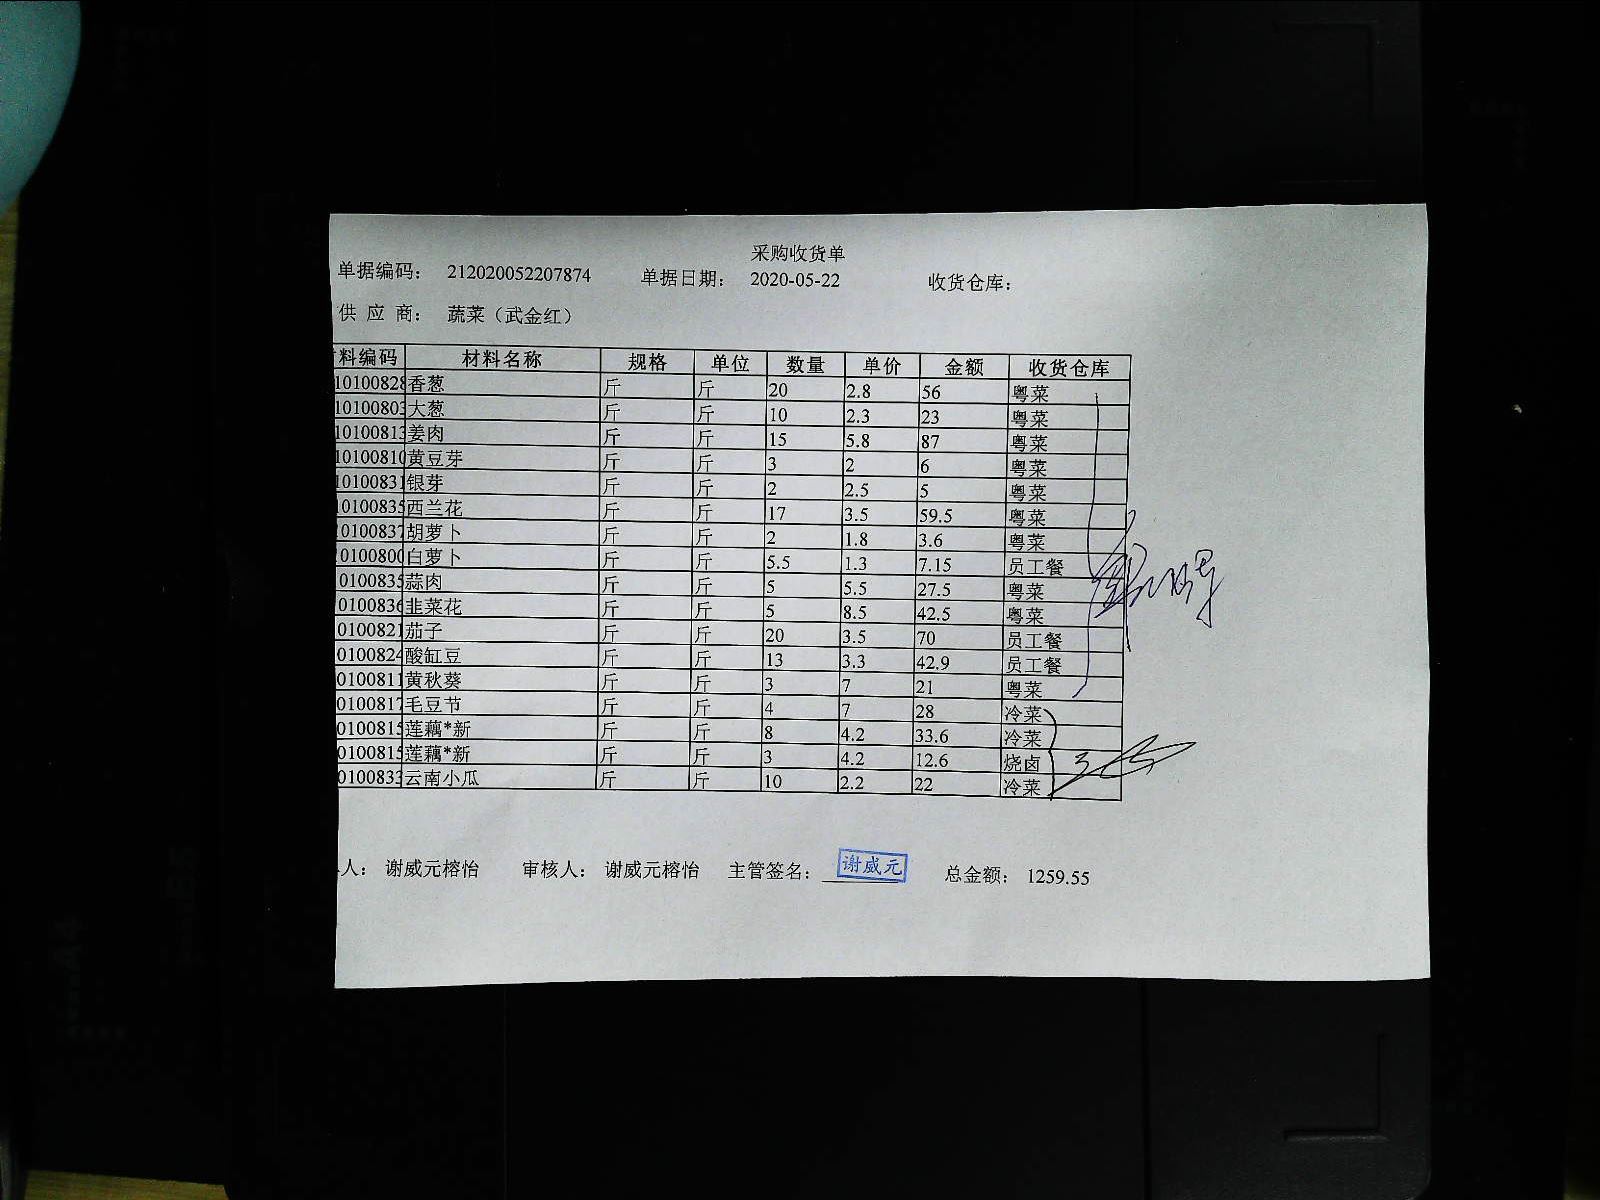 采购收货单
单据编码： 212020052207874 单据日期： 2020-05-22 收货仓库：
供 应 商： 蔬菜（武金红）
料编码 材料名称 规格 单位 数量 单价 金额 收货仓库
10100828 香葱 斤 斤 20 2.8 56 粤菜
10100803 大葱 斤 斤 10 2.3 23 粤菜
10100813 姜肉 斤 斤 15 5.8 87 粤菜
10100810 黄豆芽 斤 斤 3 2 6 粤菜
10100831 银芽 斤 斤 2 2.5 5 粤菜
10100835 西兰花 斤 斤 17 3.5 59.5 粤菜
10100837 胡萝卜 斤 斤 2 1.8 3.6 粤菜
0100800 白萝卜 斤 斤 5.5 1.3 7.15 员工餐
0100835 蒜肉 斤 斤 5 5.5 27.5 粤菜
0100836 韭菜花 斤 斤 5 8.5 42.5 粤菜
0100821 茄子 斤 斤 20 3.5 70 员工餐
0100824 酸缸豆 斤 斤 13 3.3 42.9 员工餐
0100811 黄秋葵 斤 斤 3 7 21 粤菜
0100817 毛豆节 斤 斤 4 7 28 冷菜
0100815 莲藕*新 斤 斤 8 4.2 33.6 冷菜
0100815 莲藕*新 斤 斤 3 4.2 12.6 烧卤
0100833 云南小瓜 斤 斤 10 2.2 22 冷菜
人： 谢威元榕怡 审核人： 谢威元榕怡 主管签名： 谢威元 总金额： 1259.55